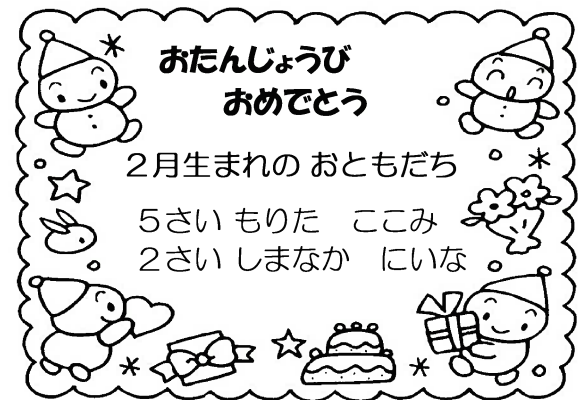 おたんじょうび
おめでとう
２月生まれの おともだち
５さい もりた　ここみ
２さい しまなか　にいな